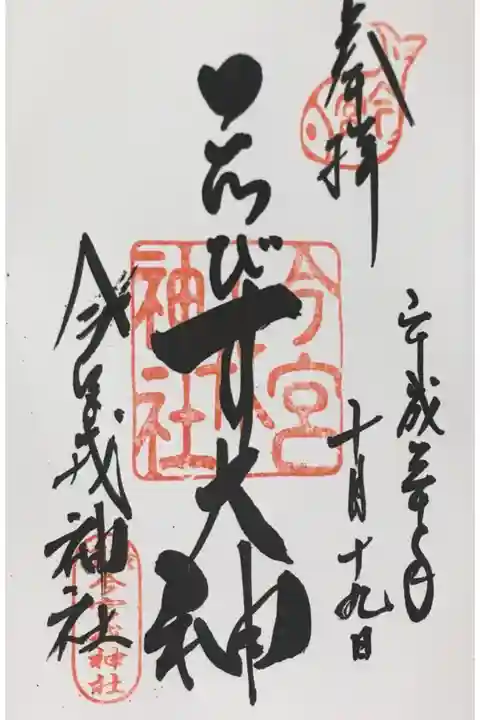 奉拝
平成 年
十月十九日
ゑびす大神
今宮戎神社
今宮戎神社
今宮戎神社